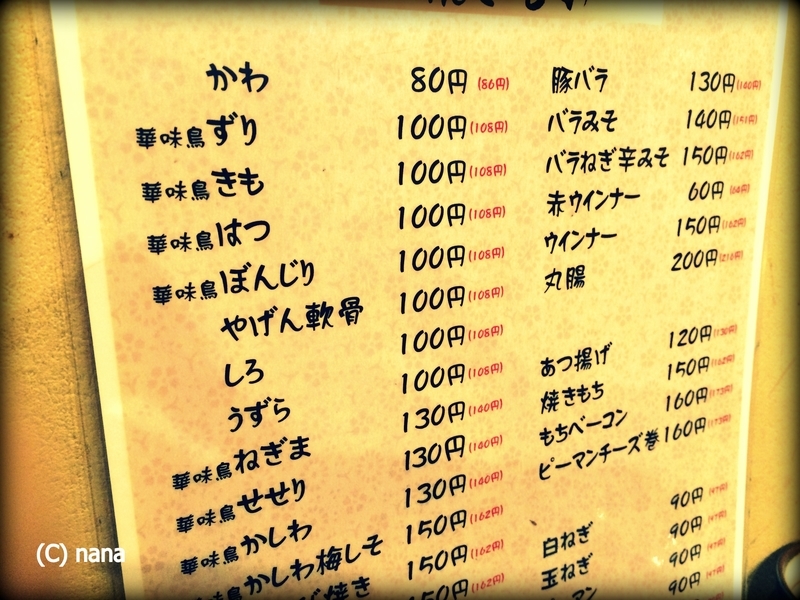 かわ 80円 (86円)
華味鳥ずり 100円 (108円)
華味鳥きも 100円 (108円)
華味鳥はつ 100円 (108円)
華味鳥ぼんじり 100円 (108円)
やげん軟骨 100円 (108円)
しろ 100円 (108円)
うずら 100円 (108円)
華味鳥ねぎま 130円 (140円)
華味鳥せせり 130円 (140円)
華味鳥かしわ 130円 (140円)
華味鳥かしわ梅しそ 150円 (162円)
焼き 150円 (162円)
150円 (162円)
豚バラ 130円 (140円)
バラみそ 140円 (151円)
バラねぎ辛みそ 150円 (162円)
赤ウインナー 60円 (64円)
ウインナー 150円 (162円)
丸腸 200円 (216円)
あつ揚げ 120円 (130円)
焼きもち 150円 (162円)
もちベーコン 160円 (173円)
ピーマンチーズ巻 160円 (173円)
白ねぎ 90円 (97円)
玉ねぎ 90円 (97円)
マン 90円 (97円)
90円 (97円)
(C) nana